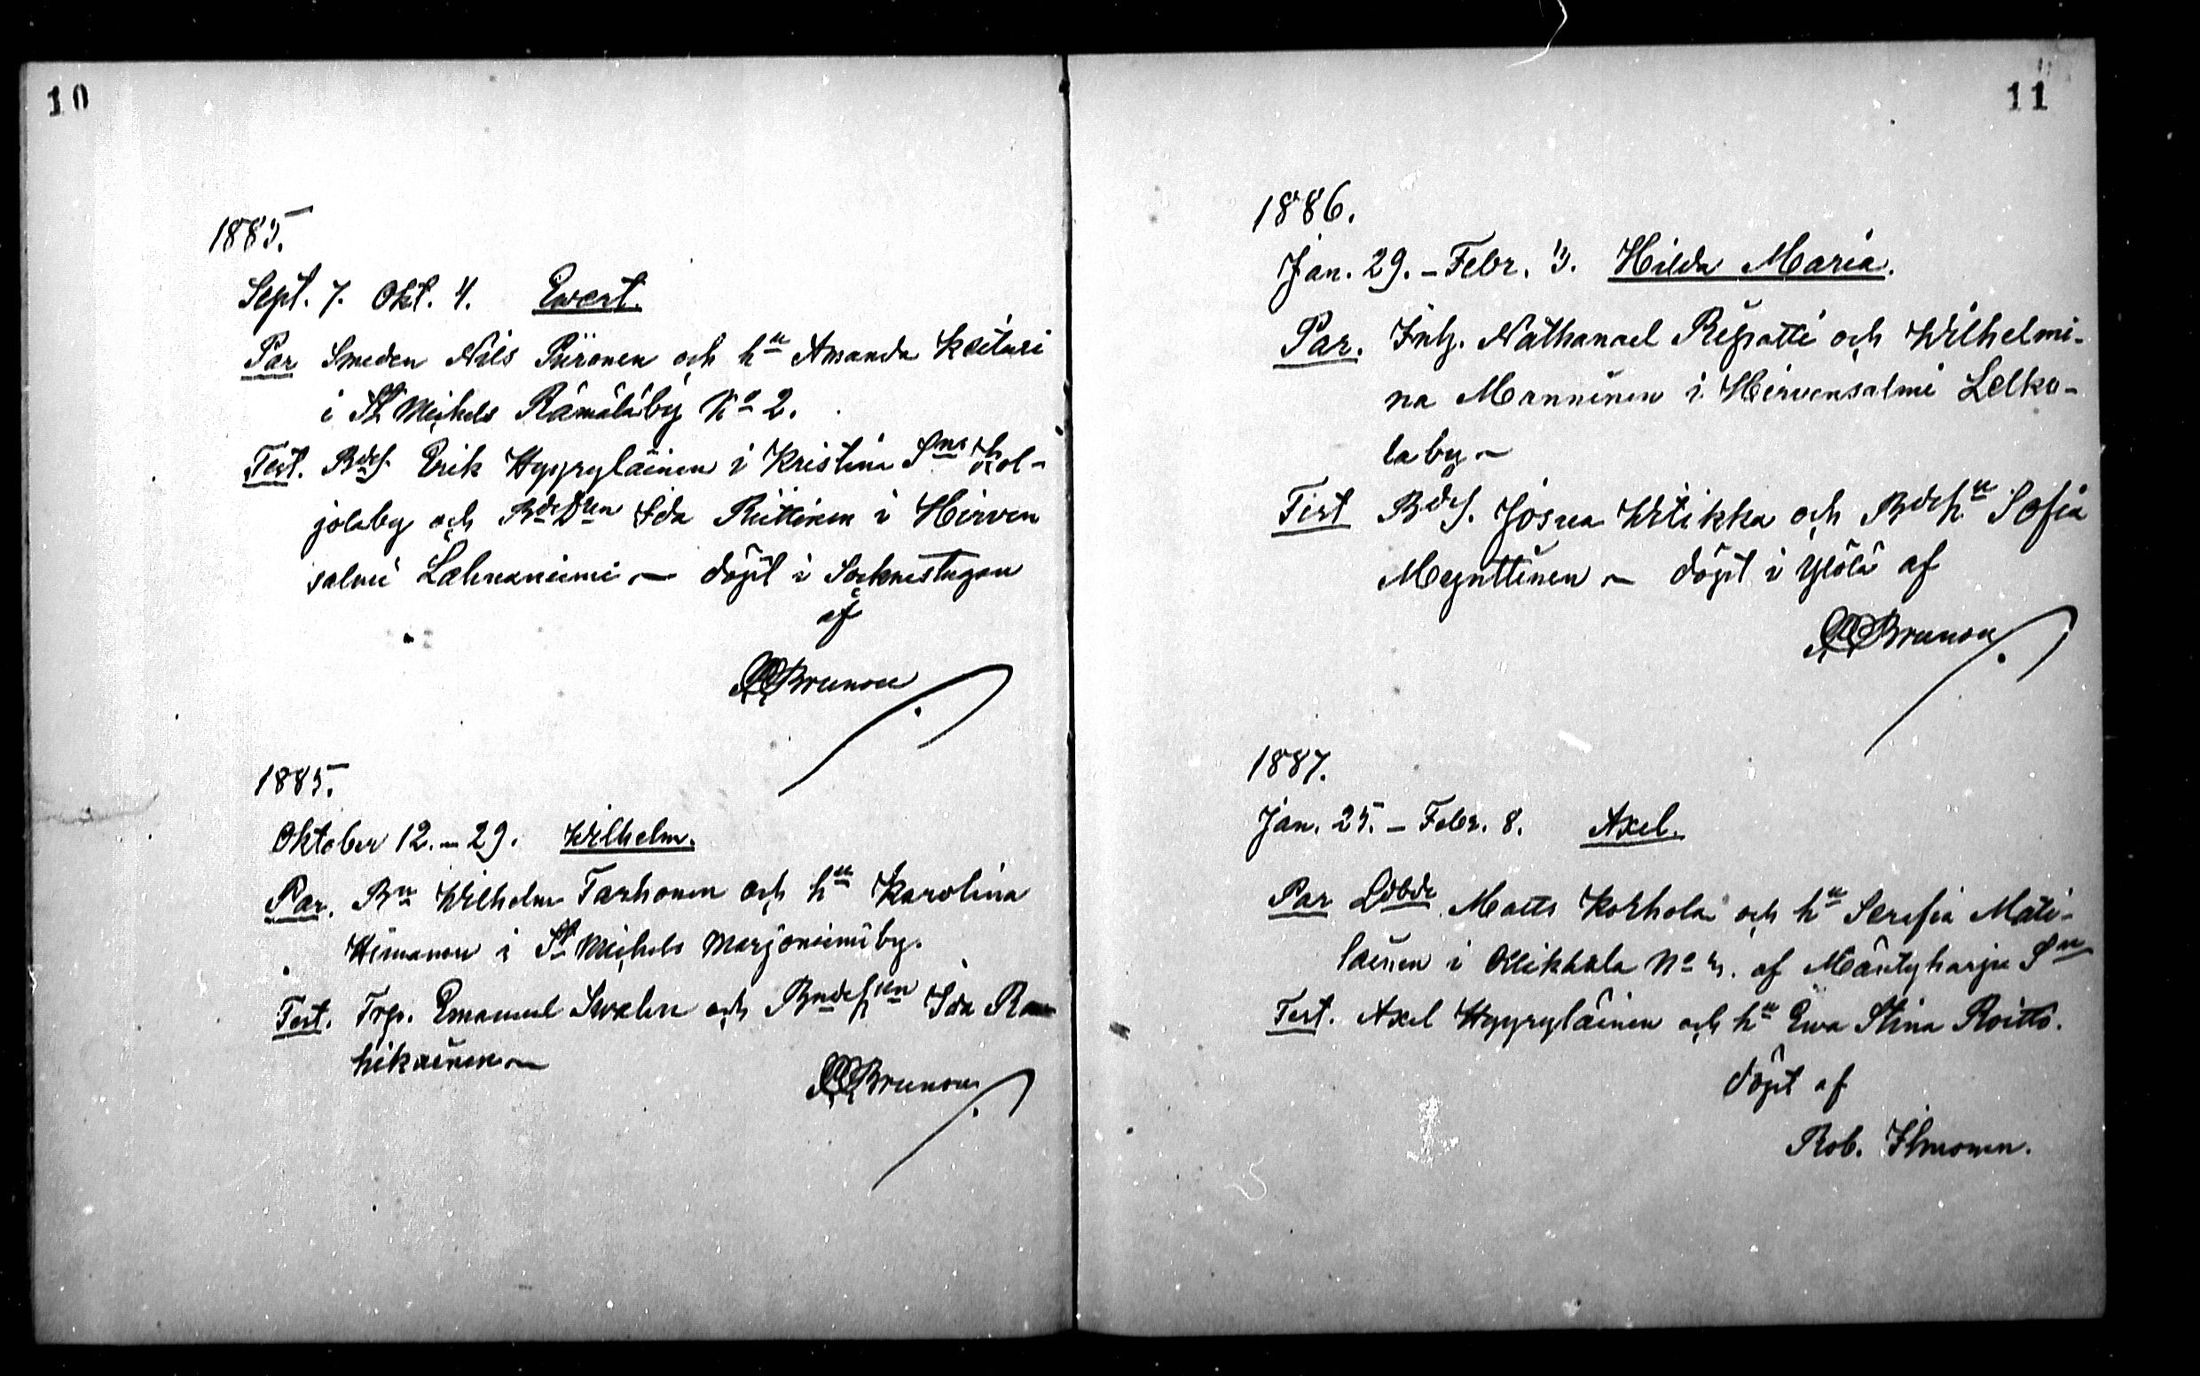 10
1885.
Sept. 7. Okt. 4. Ewert.
Par Smeden Nils Piironen och hu Amanda Keituri
i St Michels Rämäläby No 2.
Test. Bdes. Erik Hyyryläinen i Kristina Sns Kol-
jolaby och Bdesdren Ida Riittinen i Hirven
salmi Lahnaniemi — döpt i Socknestugan
af
Brunou
1885.
Oktober 12. – 29. Wilhelm.
Par. Bn Wilhelm Tarhonen och hu Karolina
Himanen i St Michels Marjoniemi by.
Test. Trp. Emanuel Swahn och Ida
hikainen —
Brunou
11
1886.
Jan. 29. – Febr. 3. Hilda Maria.
Par. Inh. Nathanael Repatti och Wilhelmi-
na Manninen i Hirvensalmi Lelko-
la by —
Test Bdes. Josua Witikka och Bdeshu Sofia
Mynttinen — döpt i Ylölä af
Brunou
1887.
Jan. 25. – Febr. 8. Axel.
Par Ldbde Matts Korhola och hu Serafia Mati-
lainen i Ollikkala No 3. af Mäntyharju Sn
Test. Axel Hyyryläinen och hu Ewa Stina Roitto.
döpt af
Rob. Ilmonen.